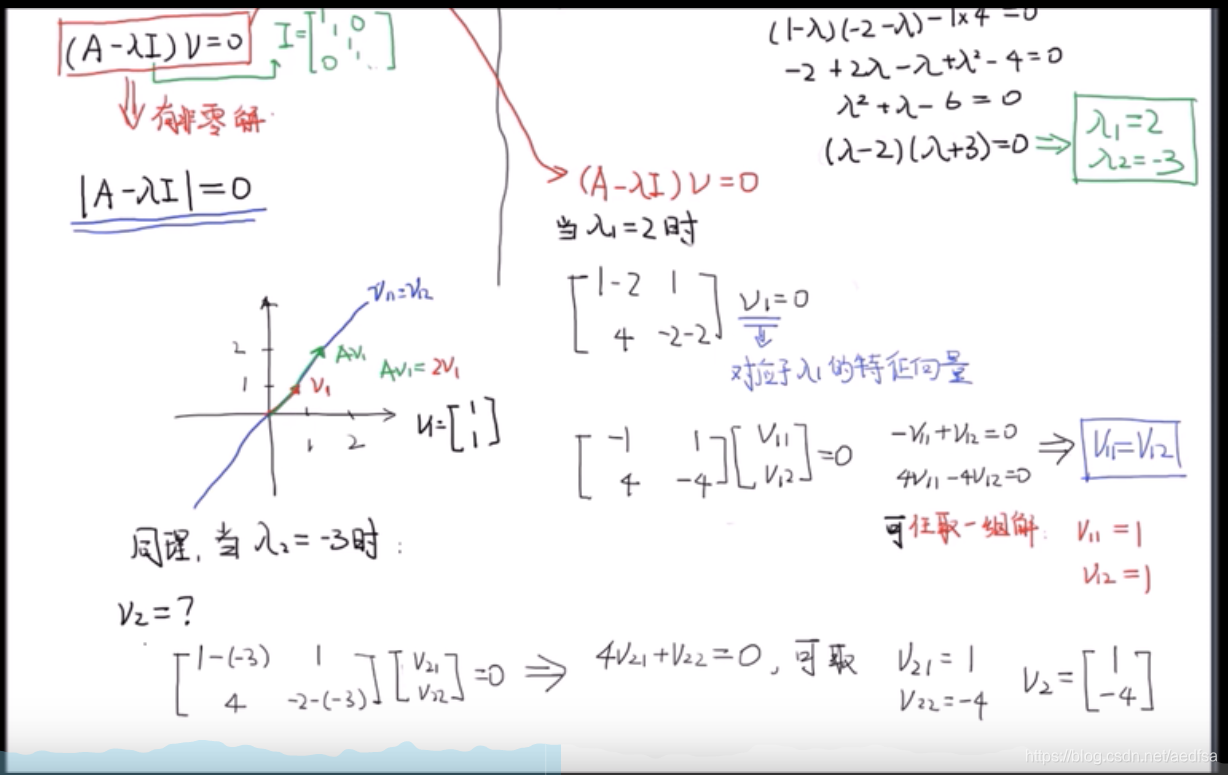 (A-λI)V=0
I=[1 1 0
1
0 1]
有非零解
|A-λI|=0
(1-λ)(-2-λ)-1×4=0
-2+2λ-λ+λ²-4=0
λ²+λ-6=0
(λ-2)(λ+3)=0 ⇒ λ1=2
λ2=-3
(A-λI)V=0
当λ1=2时
[1-2 1
4 -2-2] V1=0
对应于λ1的特征向量
V11=V12
2
1
1 2
AV1
V1
AV1=2V1
V=[1
1]
[-1 1
4 -4][V11
V12]=0
-V11+V12=0
4V11-4V12=0
⇒ V11=V12
可任取一组解: V11=1
V12=1
同理,当λ2=-3时:
V2=?
[1-(-3) 1
4 -2-(-3)][V21
V22]=0 ⇒ 4V21+V22=0, 可取 V21=1
V22=-4
V2=[1
-4]
https://blog.csdn.net/aedfsa